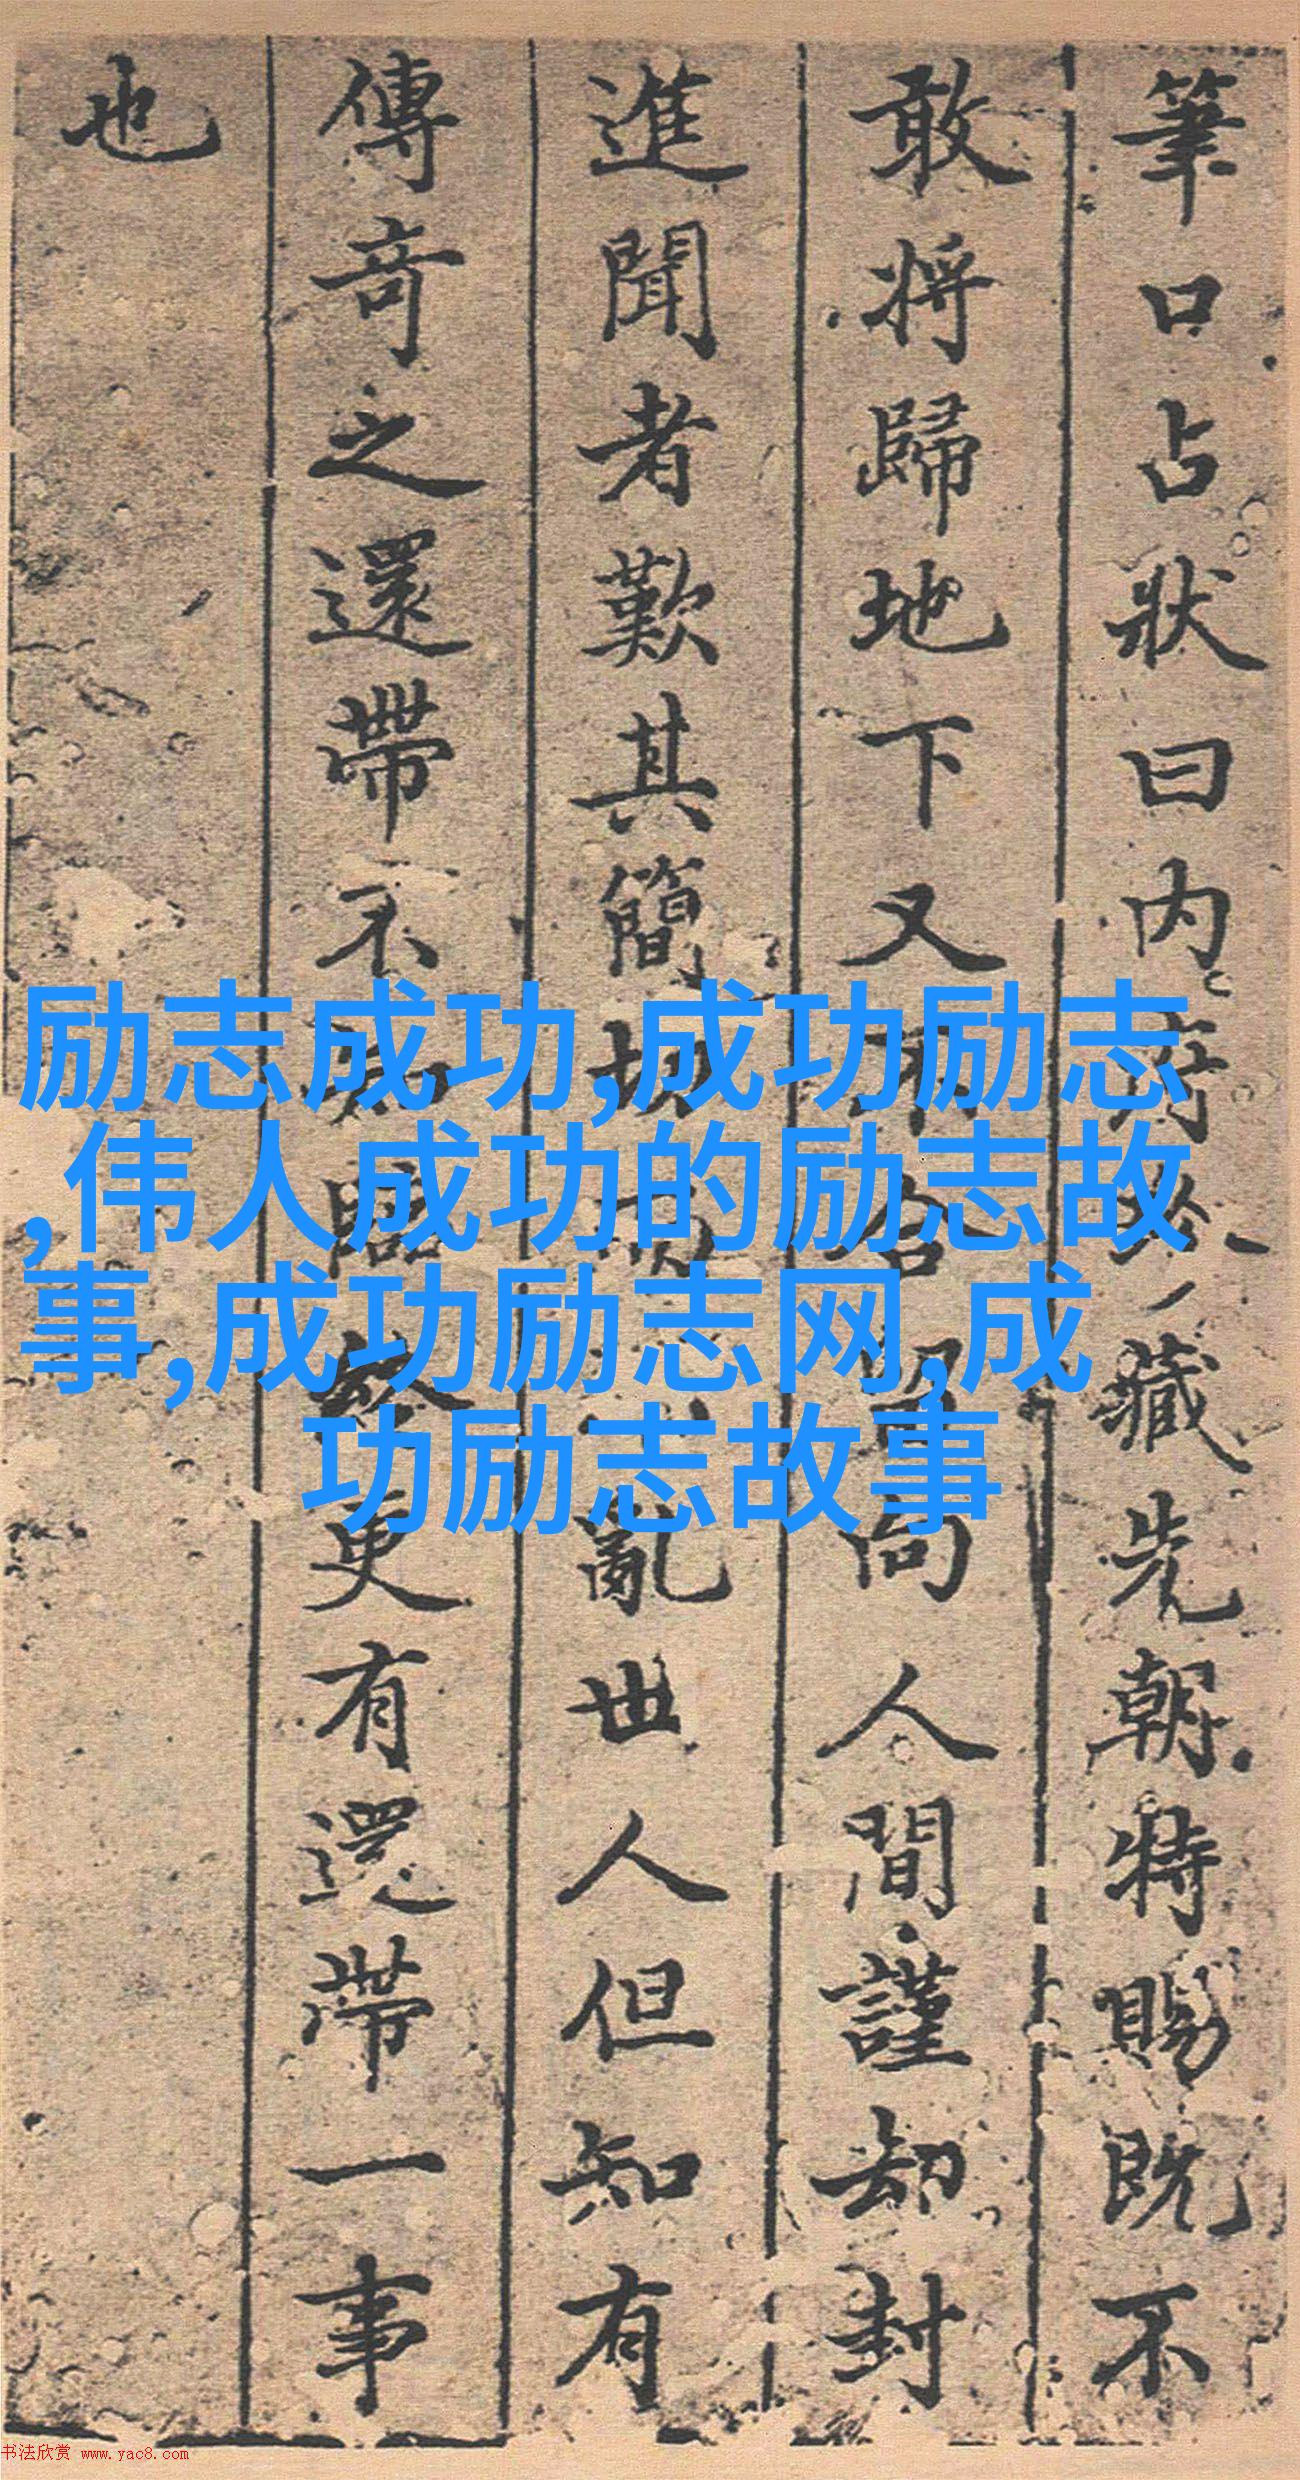 筆口占狀曰内府珎藏先朝特賜既不
敢將歸地下又不合留向人間謹却封
進聞者歎其簡切而不亂世人但知有
傳奇之還帶不知臨終更有還帶一事
也
励志成功,成功励志
,伟人成功的励志故
事,成功励志网,成
功励志故事
书法欣赏 www.yac8.com